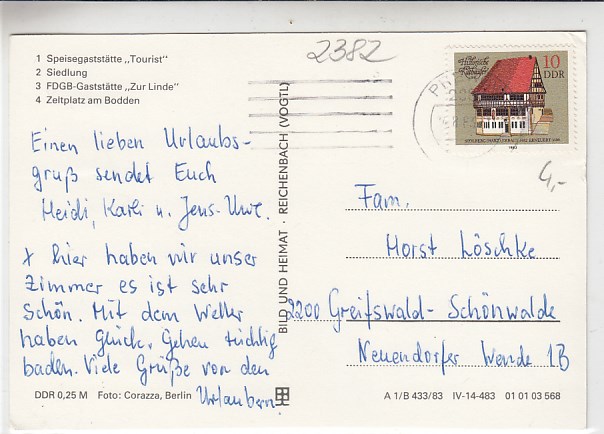 1 Speisegaststätte „Tourist"
2 Siedlung
3 FDGB-Gaststätte „Zur Linde"
4 Zeltplatz am Bodden
2382
Historische
Rathäuser
10
DDR
1983
4,-
Einen lieben Urlaubs-
gruß sendet Euch
Heidi, Karli u. Jens-Uwe.
x hier haben wir unser
Zimmer es ist sehr
schön. Mit dem Wetter
haben Glück. Gehen tüchtig
baden. Viele Grüße von den
Urlaubern
BILD UND HEIMAT · REICHENBACH (VOGTL)
Fam.
Horst Löschke
2200 Greifswald-Schönwalde
Neuendorfer Wende 1B
DDR 0,25 M Foto: Corazza, Berlin
A 1/B 433/83 IV-14-483 01 01 03 568